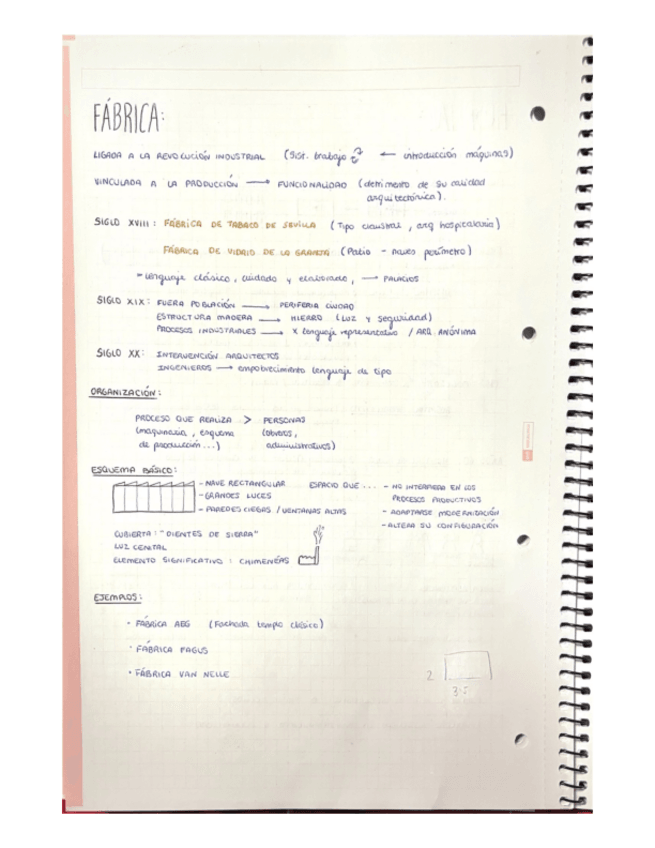 FÁBRICA:
LIGADA A LA REVOLUCIÓN INDUSTRIAL (Sist. trabajo ← introducción máquinas)
VINCULADA A LA PRODUCCIÓN → FUNCIONALIDAD (detrimento de su calidad
arquitectónica).
SIGLO XVIII: FÁBRICA DE TABACO DE SEVILLA (Tipo claustral, arq hospitalaria)
FÁBRICA DE VIDRIO DE LA GRANJA: (Patio - naves perímetro)
- Lenguaje clásico, cuidado y elaborado, → PALACIOS
SIGLO XIX: FUERA POBLACIÓN → PERIFERIA CIUDAD
ESTRUCTURA MADERA → HIERRO (LUZ y seguridad)
PROCESOS INDUSTRIALES → X lenguaje representativo / ARQ. ANÓNIMA
SIGLO XX: INTERVENCIÓN ARQUITECTOS
INGENIEROS → empobrecimiento lenguaje de tipo
ORGANIZACIÓN:
PROCESO QUE REALIZA > PERSONAS
(maquinaria, esquema (obreros,
de producción...) administrativos)
ESQUEMA BÁSICO:
- NAVE RECTANGULAR ESPACIO QUE ... - NO INTERFIERA EN LOS
- GRANDES LUCES PROCESOS PRODUCTIVOS
- PAREDES CIEGAS / VENTANAS ALTAS - ADAPTARSE MODERNIZACIÓN
- ALTERA SU CONFIGURACIÓN
CUBIERTA: "DIENTES DE SIERRA"
LUZ CENITAL
ELEMENTO SIGNIFICATIVO: CHIMENEAS
EJEMPLOS:
· FÁBRICA AEG (Fachada templo clásico)
· FÁBRICA FAGUS
· FÁBRICA VAN NELLE
2
3.5